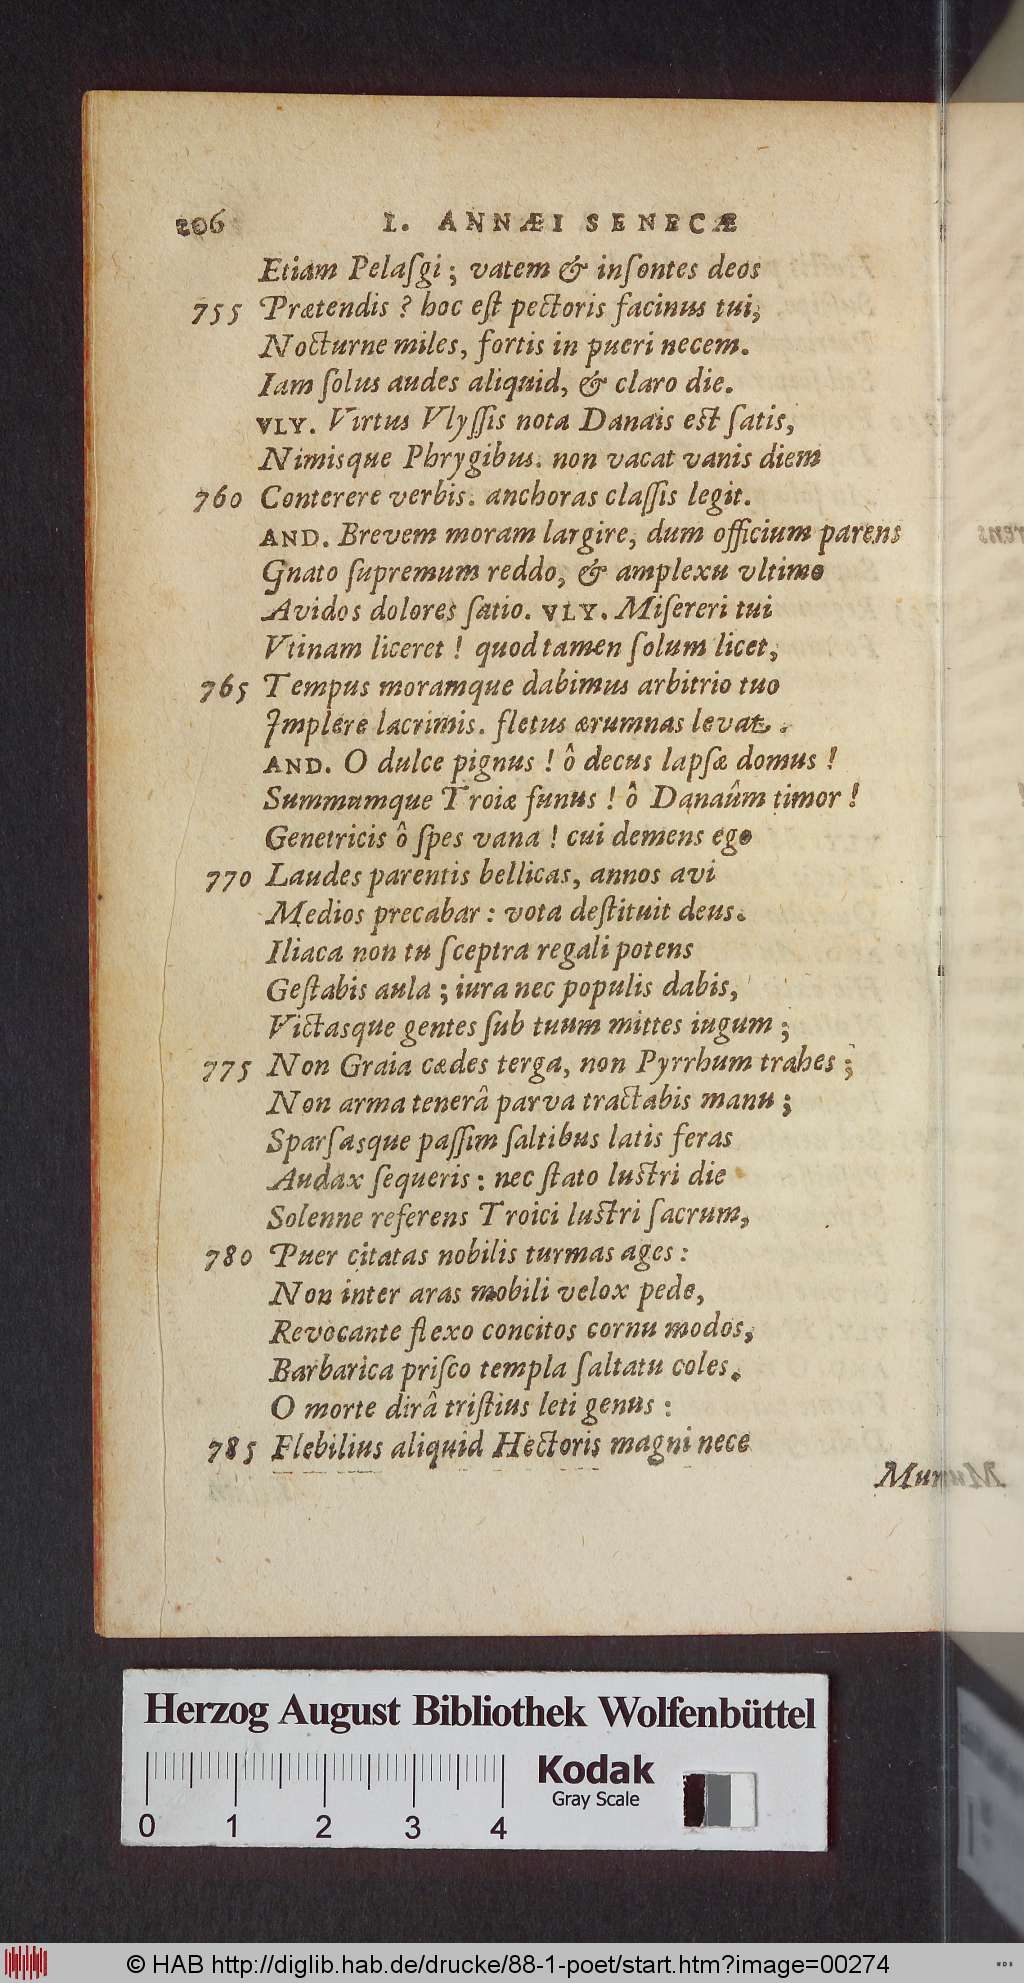 206 L. ANNÆI SENECÆ
Etiam Pelaſgi; vatem & inſontes deos
755 Prætendis? hoc eſt pectoris facinus tui,
Nocturne miles, fortis in pueri necem.
Iam ſolus audes aliquid, & claro die.
VLY. Virtus Vlyſſis nota Danais eſt ſatis,
Nimisque Phrygibus. non vacat vanis diem
760 Conterere verbis. anchoras claſſis legit.
AND. Brevem moram largire, dum officium parens
Gnato ſupremum reddo, & amplexu vltimo
Avidos dolores ſatio. VLY. Miſereri tui
Vtinam liceret! quod tamen ſolum licet,
765 Tempus moramque dabimus arbitrio tuo
Implere lacrimis. fletus ærumnas levat.
AND. O dulce pignus! ô decus lapſæ domus!
Summumque Troiæ funus! ô Danaûm timor!
Genetricis ô ſpes vana! cui demens ego
770 Laudes parentis bellicas, annos avi
Medios precabar: vota deſtituit deus.
Iliaca non tu ſceptra regali potens
Geſtabis aula; iura nec populis dabis,
Victasque gentes ſub tuum mittes iugum;
775 Non Graia cædes terga, non Pyrrhum trahes;
Non arma tenerâ parva tractabis manu;
Sparſasque paſſim ſaltibus latis feras
Audax ſequeris: nec ſtato luſtri die
Solenne referens Troici luſtri ſacrum,
780 Puer citatas nobilis turmas ages:
Non inter aras mobili velox pede,
Revocante flexo concitos cornu modos,
Barbarica priſco templa ſaltatu coles.
O morte dirâ triſtius leti genus:
785 Flebilius aliquid Hectoris magni nece
Mur
Herzog August Bibliothek Wolfenbüttel
Kodak
Gray Scale
0 1 2 3 4
© HAB http://diglib.hab.de/drucke/88-1-poet/start.htm?image=00274